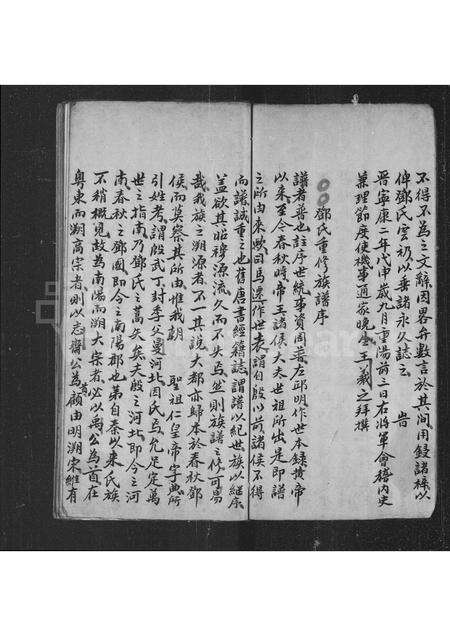 不得不為之文辭因畧弁數言於其间用録諸梓以
俾鄧氏雲礽以垂諸永久誌云 旹
晉寧康二年戊申歲九月重陽前三日右將軍會稽内史
兼理節度使機事通家晚生王羲之拜撰
鄧氏重修族譜序
譜者普也註序世統事資周普左邱明作世本録黄帝
以来至今春秋時帝王諸侯大夫世祖所出是即譜
之所由来歟司馬遷作世表謂自殷以前諸侯不得
而譜誠重之也舊唐書經籍誌謂譜以紀世族以継序
蓋欲其昭穆源流久而不失焉然則族譜之修可易
哉我族之溯源者不一其説大都亦歸本於春秋鄧
侯而莫察其所由惟我朝 聖祖仁皇帝字典所
引姓考謂殷武丁封季父曼河北因氏焉允足定萬
世之指南乃鄧氏之蒿矣矣夫殷之河北即今之河
南春秋之鄧國即今之南陽郡也第自秦以来氏族
不稍概見故為南陽而溯大宗者必以禹公為首在
粤東而溯高宗者則以志齋公為顧由明溯宋維有